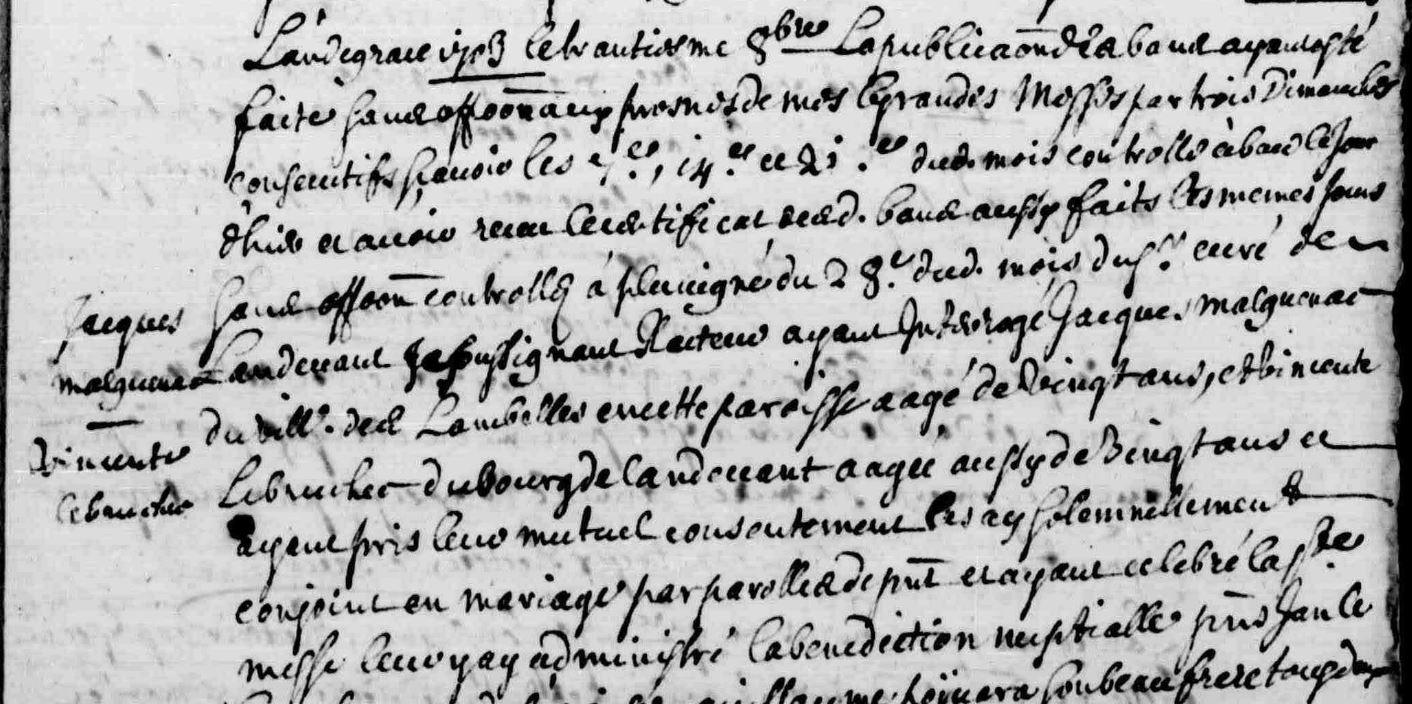 L'an de grace 1703 le trantiesme 8bre La publicaon des bans ayant esté
faite sans opposon aux prosnes de mes grandes Messes par trois Dimanches
consecutifs sçavoir les 7.es, 14.e et 21.es dud. mois controllé à baud le jour
d'hier et avoir receu le certificat desd. bans aussy faits les memes jours
sans opposon controllés à pluvigné du 28.e dud. mois du sr. curé de
Landevant Je soussignant Recteur ayant Interrogé Jacques malguenac
du vill. de Lambelles en cette paroisse aagé de Vingt ans, et vincente
Lebruchec du bourg de landevant aagée aussy de Vingt ans et
ayant pris leur mutuel consentement les ay solemnellement
conjoint en mariage par parolles de pnt et ayant celebré la ste
messe leur y ay administré la benediction nuptialle pns Jan le
guillaume son beau frere tous deux
Jacques
malguenac
Vincente
lebruchec